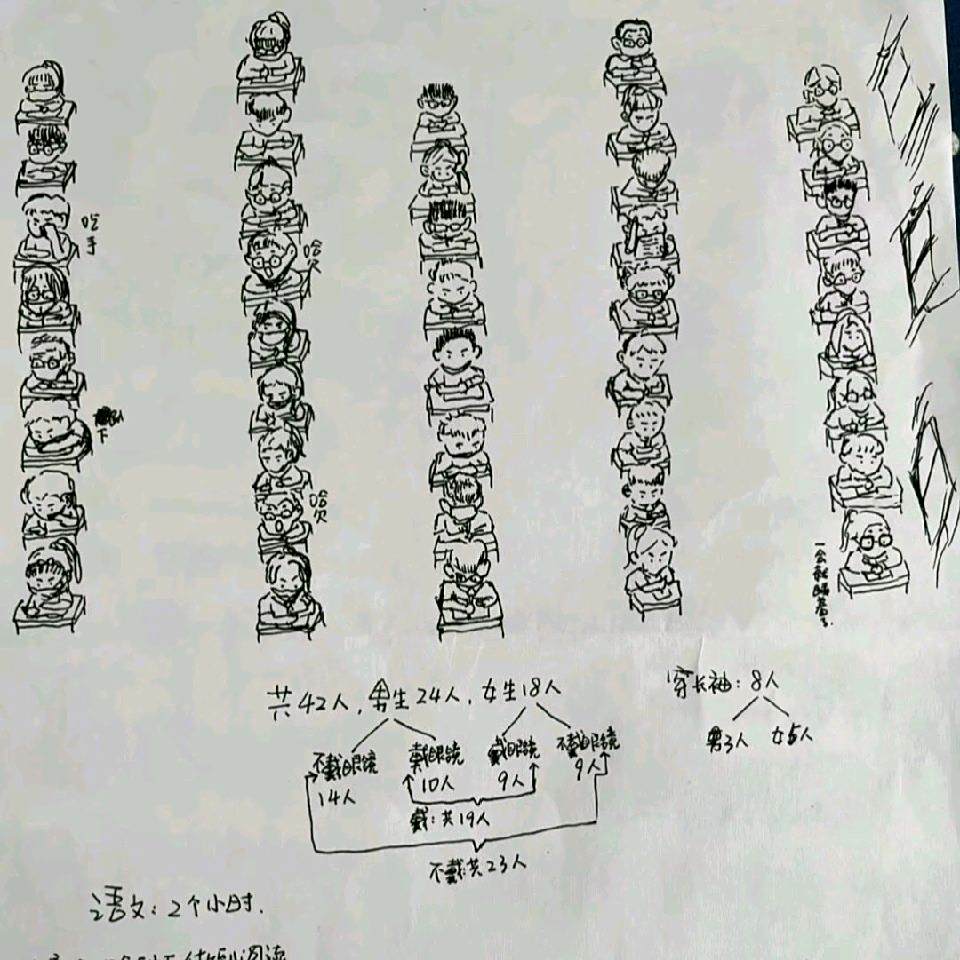 吃手
哈欠
趴下
哈欠
共42人,男生24人,女生18人
穿长袖:8人
男3人 女5人
不戴眼镜 戴眼镜 戴眼镜 不戴眼镜
14人 10人 9人 9人
戴:共19人
不戴共23人
语文:2个小时.